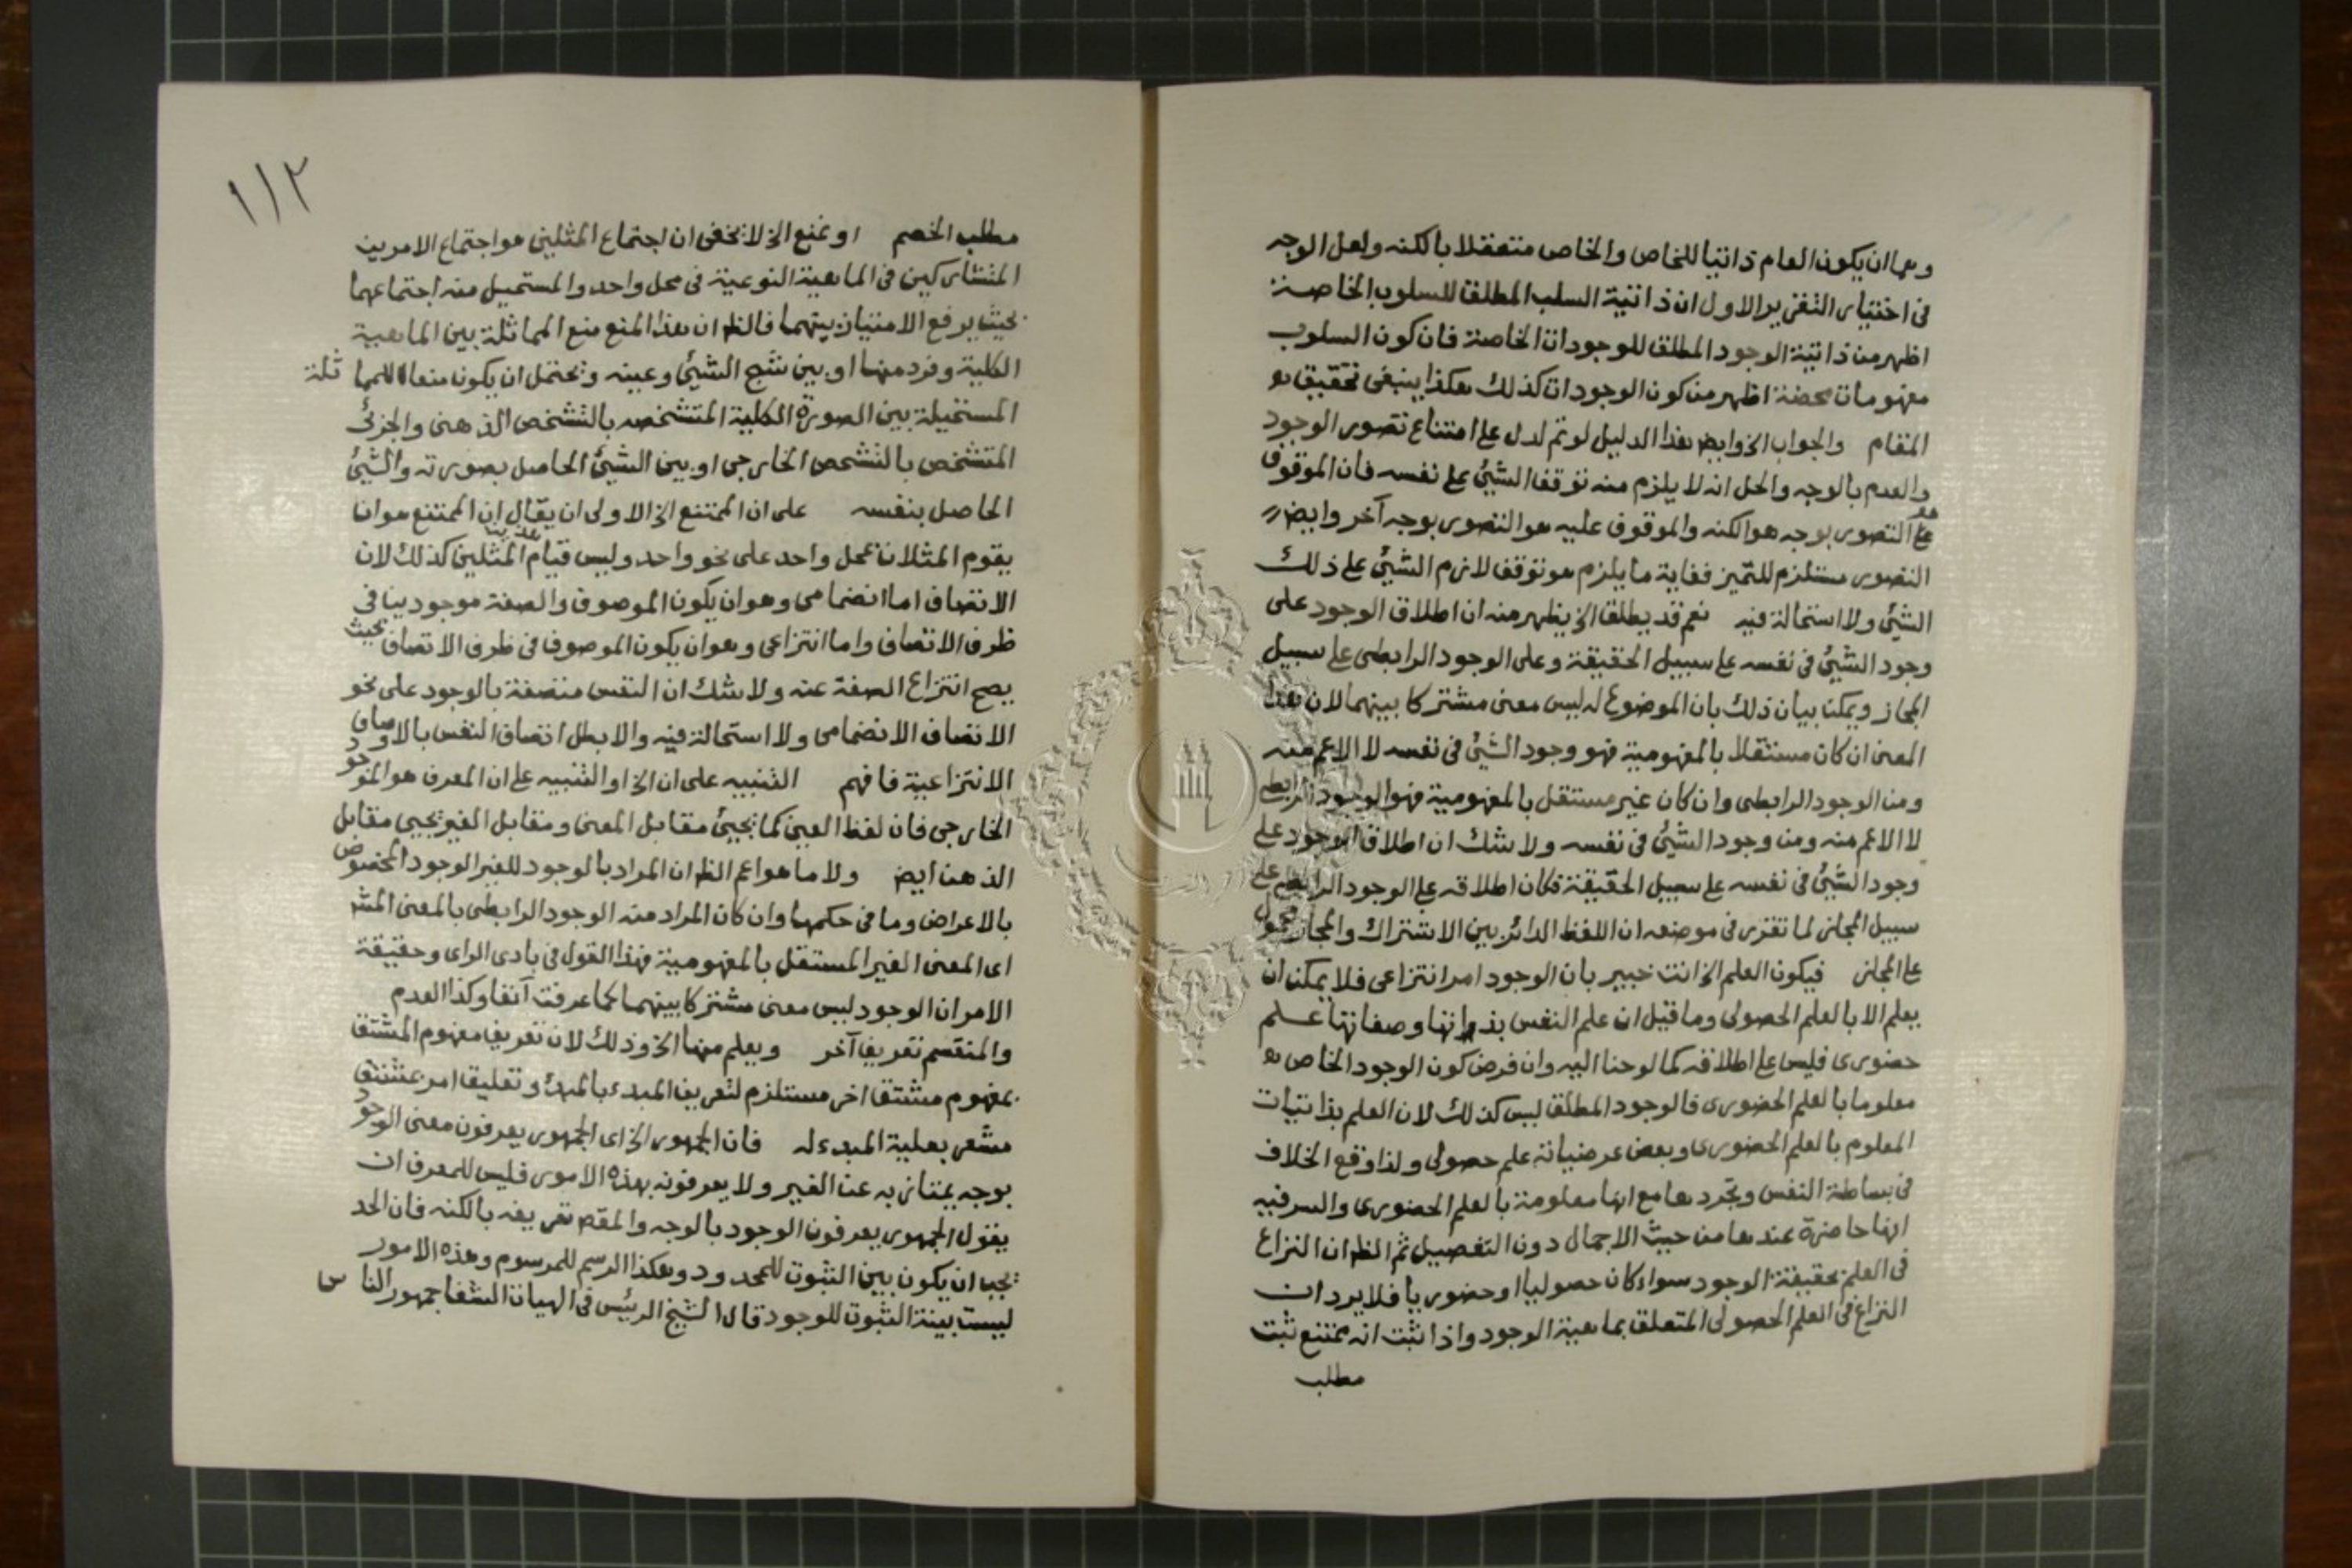 وهما ان يكون العام ذاتيا للخاص والخاص متعقلا بالكنه ولعل الوجه
فى اختيار التقرير الاول ان ذاتية السلب المطلق للسلوب الخاصة
اظهر من ذاتية الوجود المطلق للوجودات الخاصة فان كون السلوب
مفهومات محضة اظهر من كون الوجودات كذلك هكذا ينبغى تحقيق
المقام والجواب الخ وايض هذا الدليل لو تم لدل على امتناع تصور الوجود
والعدم بالوجه والحل انه لا يلزم منه توقف الشيئ على نفسه فان الموقوف
على التصور بوجه هو الكنه والموقوف عليه هو التصور بوجه آخر وايض
التصور مستلزم للتميز فغاية ما يلزم هو توقف لازم الشيئ على ذلك
الشيئ ولا استحالة فيه نعم قد يطلق الخ يظهر منه ان اطلاق الوجود على
وجود الشيئ فى نفسه على سبيل الحقيقة وعلى الوجود الرابطى على سبيل
المجاز ويمكن بيان ذلك بان الموضوع له ليس معنى مشتركا بينهما لان هذا
المعنى ان كان مستقلا بالمفهومية فهو وجود الشيئ فى نفسه لا الاعم منه
ومن الوجود الرابطى وان كان غير مستقل بالمفهومية فهو الوجود الرابطى
لا الاعم منه ومن وجود الشيئ فى نفسه ولا شك ان اطلاق الوجود على
وجود الشيئ فى نفسه على سبيل الحقيقة فكان اطلاقه على الوجود الرابطى على
سبيل المجاز لما تقرر فى موضعه ان اللفظ الدائر بين الاشتراك والمجاز محمول
على المجاز فيكون العلم الخ انت خبير بان الوجود امر انتزاعى فلا يمكن ان
يعلم الا بالعلم الحصولى وما قيل ان علم النفس بذاتها وصفاتها علم
حضورى فليس على اطلاقه كما لوحنا اليه وان فرض كون الوجود الخاص
معلوما بالعلم الحضورى فالوجود المطلق ليس كذلك لان العلم بذاتيات
المعلوم بالعلم الحضورى وبعض عرضياته علم حصولى ولذا وقع الخلاف
فى بساطة النفس وتجردها مع انها معلومة بالعلم الحضورى والسر فيه
انها حاضرة عندها من حيث الاجمال دون التفصيل ثم الظ ان النزاع
فى العلم بحقيقة الوجود سواء كان حصوليا او حضوريا فلا يرد ان
النزاع فى العلم الحصولى المتعلق بماهية الوجود واذا ثبت انه ممتنع ثبت
مطلب
١١٢
مطلب الخصم او نمنع الخ لا يخفى ان اجتماع المثلين هو اجتماع الامرين
المتشاركين فى الماهية النوعية فى محل واحد والمستحيل منه اجتماعهما
بحيث يرفع الامتياز بينهما فالظ ان هذا المنع منع المماثلة بين الماهية
الكلية وفرد منها او بين شبح الشيئ وعينه ويحتمل ان يكون منعا للمماثلة
المستحيلة بين الصورة الكلية المتشخصه بالتشخص الذهنى والجزئى
المتشخص بالتشخص الخارجى او بين الشيئ الحاصل بصورته والشيئ
الحاصل بنفسه على ان الممتنع الخ الاولى ان يقال ان الممتنع هو ان
يقوم المثلان بمحل واحد على نحو واحد وليس قيام المثلين كذلك لان
الاتصاف اما انضمامى وهو ان يكون الموصوف والصفة موجودين فى
ظرف الاتصاف واما انتزاعى وهو ان يكون الموصوف فى ظرف الاتصاف بحيث
يصح انتزاع الصفة عنه ولا شك ان النفس متصفة بالوجود على نحو
الاتصاف الانضمامى ولا استحالة فيه والا بطل اتصاف النفس بالاوصاف
الانتزاعية فافهم التنبيه على ان الخ او التنبيه على ان المعرف هو الموجود
الخارجى فان لفظ العين كما يجيئ مقابل المعنى ومقابل الغير يجيى مقابل
الذهن ايض ولا ما هو اعم الظ ان المراد بالوجود للغير الوجود المخصوص
بالاعراض وما فى حكمها وان كان المراد منه الوجود الرابطى بالمعنى المش
اى المعنى الغير المستقل بالمفهومية فهذا القول فى بادى الراى وحقيقة
الامر ان الوجود ليس معنى مشتركا بينهما كما عرفت آنفا وكذا العدم
والمنقسم تعريف آخر ويعلم منها الخ وذلك لان تعريف مفهوم المشتق
بمفهوم مشتق اخر مستلزم لتعريف المبدء بالمبدء وتعليق امر بمشتق
مشعر بعلية المبدء له فان الجمهور الخ اى الجمهور يعرفون معنى الوجود
بوجه يمتاز به عن الغير ولا يعرفونه بهذه الامور فليس للمعرف ان
يقول الجمهور يعرفون الوجود بالوجه والمقص تعريفه بالكنه فان الحد
يجب ان يكون بين الثبوت للمحدود وهكذا الرسم للمرسوم وهذه الامور
ليست بينة الثبوت للوجود قال الشيخ الرئيس فى الهيات الشفا جمهور الناس